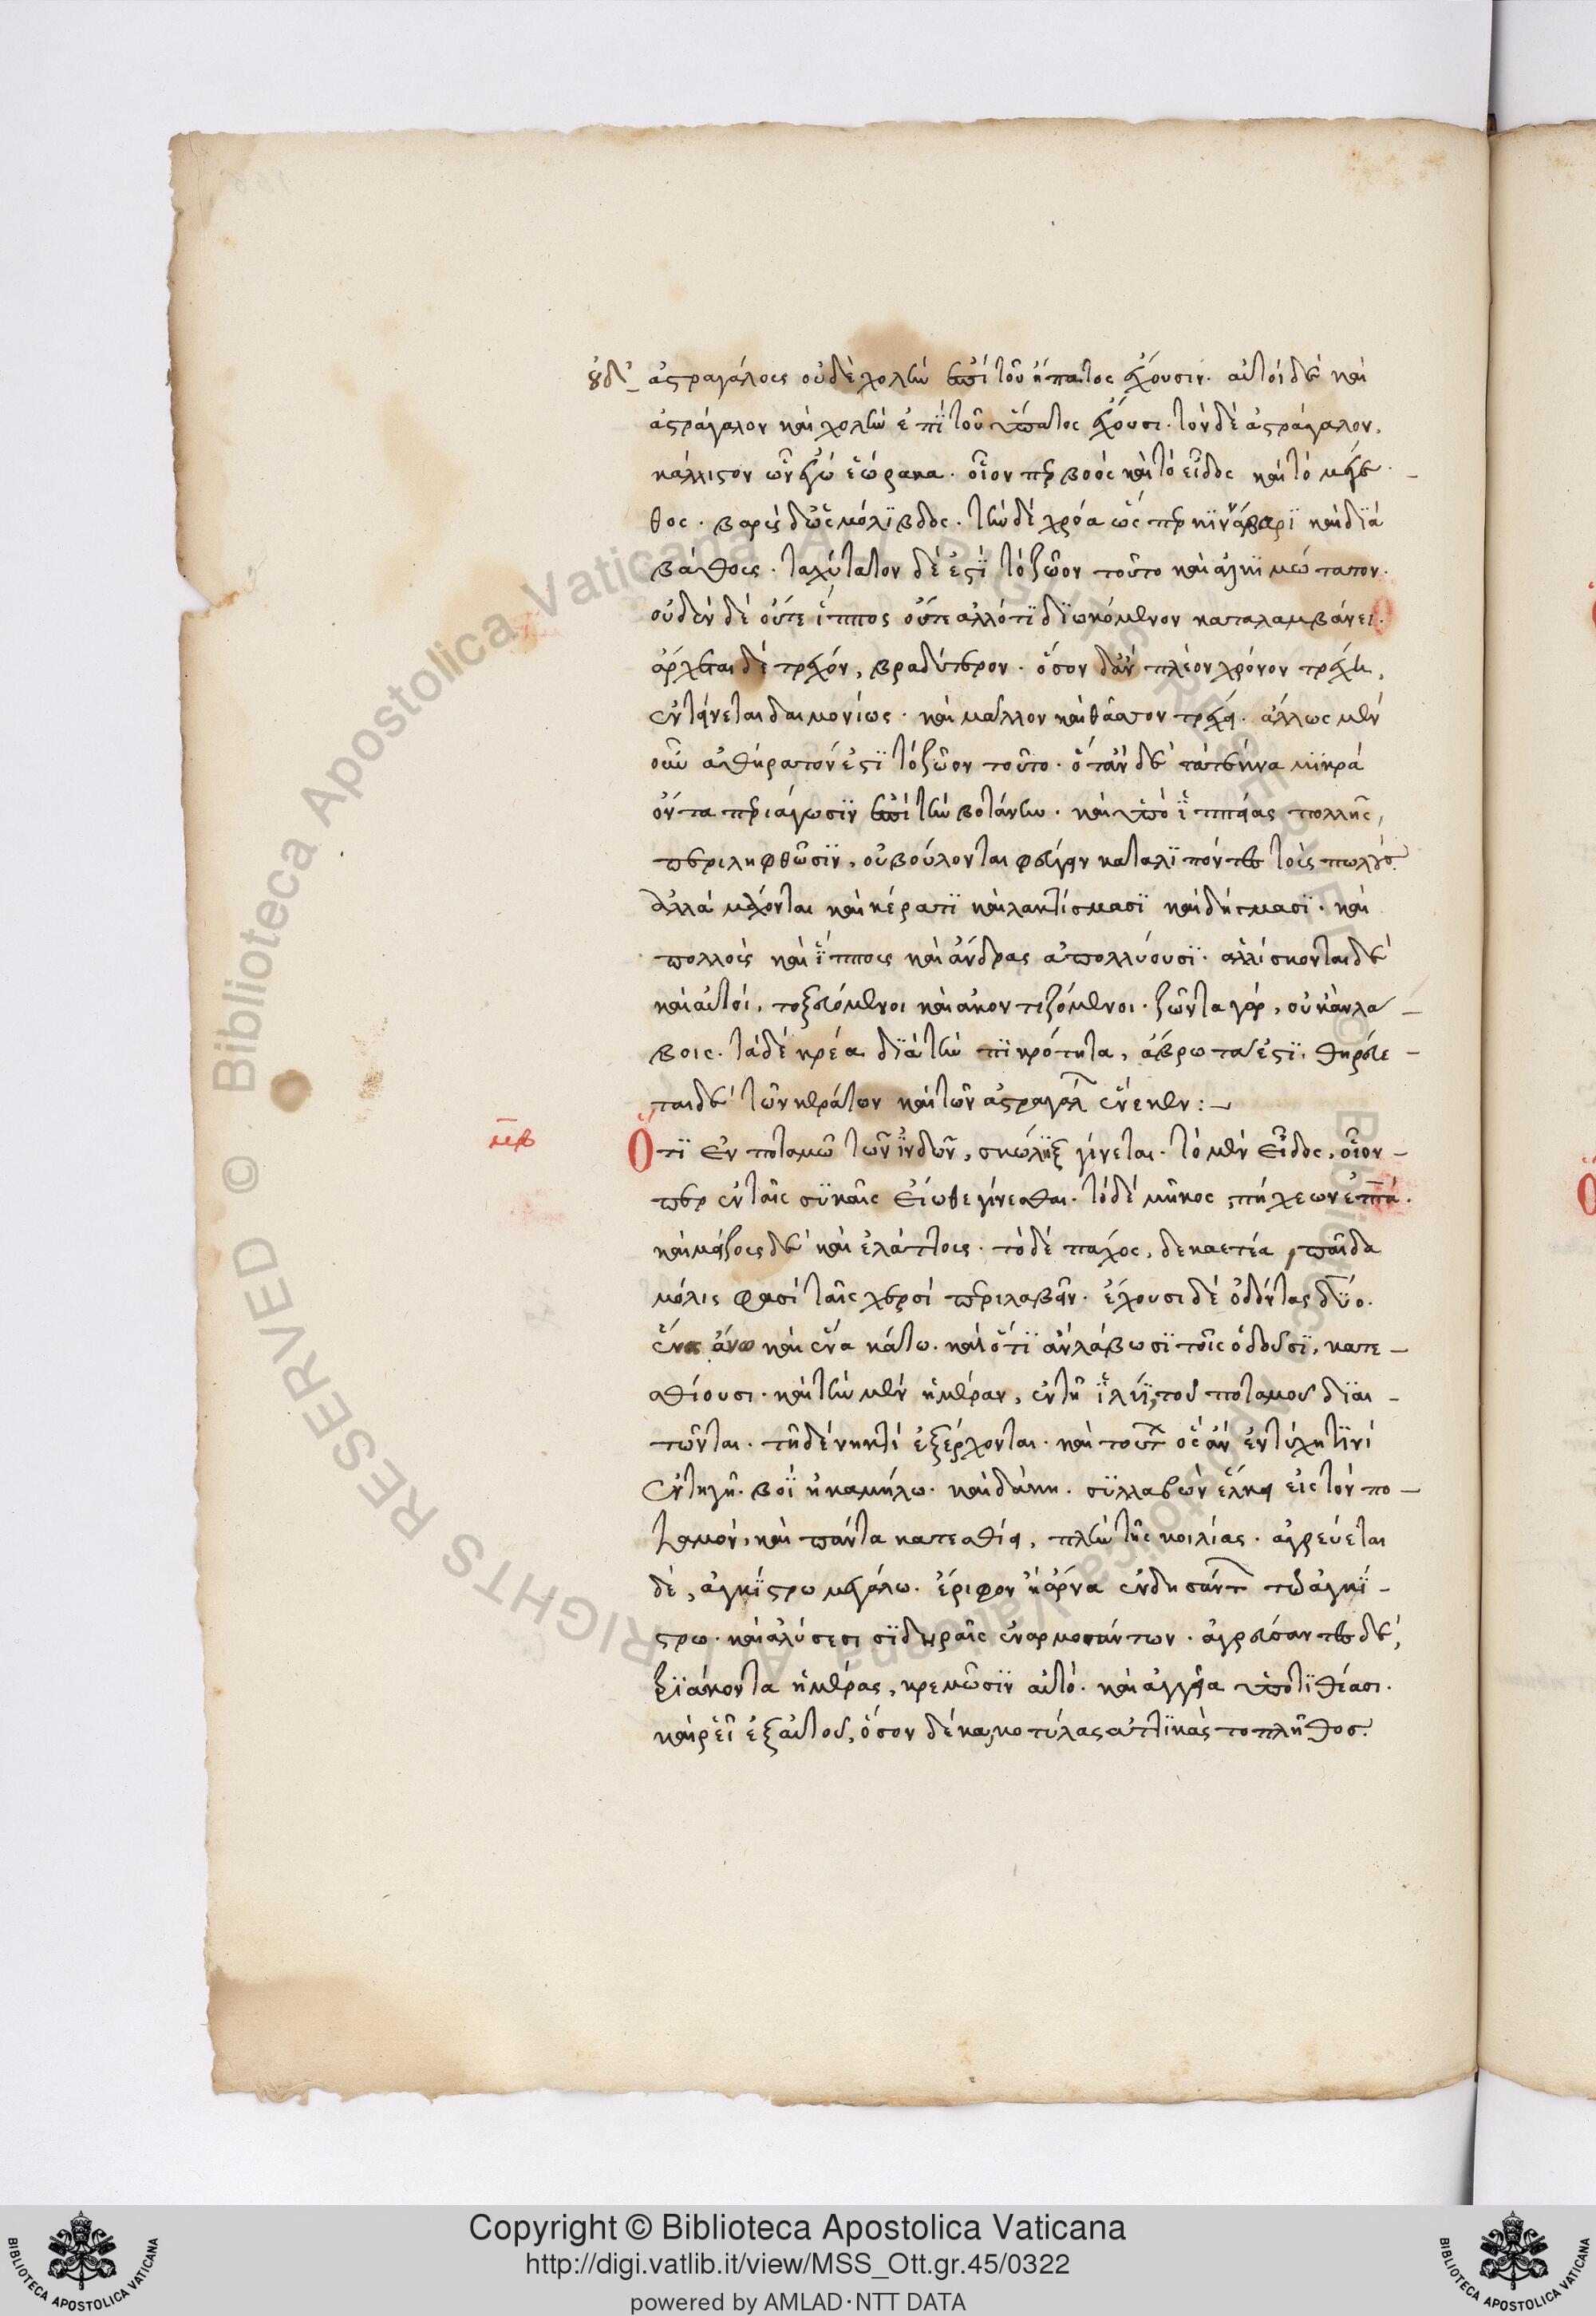 οὐδ' ἀστραγάλους οὐδὲ χολὴν ἐπὶ τοῦ ἥπατος ἔχουσιν. αὐτοὶ δὲ καὶ
ἀστράγαλον καὶ χολὴν ἐπὶ τοῦ ἥπατος ἔχουσι. τὸν δὲ ἀστράγαλον,
κάλλιστον ὧν ἐγὼ ἑώρακα. οἷόν περ βοὸς καὶ τὸ εἶδος καὶ τὸ μέγε-
θος. βαρὺς δ' ὡς μόλιβδος. τὴν δὲ χρόα ὥσπερ κιννάβαρι καὶ διὰ
βάθους. ταχύτατον δέ ἐστι τὸ ζῷον τοῦτο καὶ ἀλκιμώτατον.
οὐδὲν δὲ οὔτε ἵππος οὔτε ἄλλό τι διωκόμενον καταλαμβάνει.
ἄρχεται δὲ τρέχον, βραδύτερον. ὅσον δ' ἂν πλέον χρόνον τρέχῃ,
ἐντείνεται δαιμονίως. καὶ μᾶλλον καὶ θᾶττον τρέχει. ἄλλως μὲν
οὖν ἀθήρατόν ἐστι τὸ ζῷον τοῦτο. ὅταν δὲ τὰ τέκνα μικρὰ
ὄντα περιάγωσιν ἐπὶ τὴν βοτάνην. καὶ ὑπὸ ἱππείας πολλῆς,
περιληφθῶσιν, οὐ βούλονται φεύγειν καταλιπόντες τοὺς πώλους.
ἀλλὰ μάχονται καὶ κέρατι καὶ λακτίσμασι καὶ δήγμασι. καὶ
πολλοὺς καὶ ἵππους καὶ ἄνδρας ἀπολλύουσι. ἁλίσκονται δὲ
καὶ αὐτοί, τοξευόμενοι καὶ ἀκοντιζόμενοι. ζῶντα γάρ, οὐκ ἂν λά-
βοις. τὰ δὲ κρέα διὰ τὴν πικρότητα, ἄβρωτά ἐστι. θηρεύε-
ται δὲ τῶν κεράτων καὶ τῶν ἀστραγάλ ἕνεκεν:—
Ὅτι ἐν ποταμῷ τῶν ἰνδῶν, σκώληξ γίνεται. τὸ μὲν εἶδος, οἷόν-
περ ἐν ταῖς συκαῖς εἴωθε γίνεσθαι. τὸ δὲ μῆκος, πήχεων ἑπτά.
καὶ μείζους δὲ καὶ ἐλάττους. τὸ δὲ πάχος, δεκαετέα παῖδα
μόλις φασὶ ταῖς χερσὶ περιλαβεῖν. ἔχουσι δὲ ὀδόντας δύο.
ἕνα ἄνω καὶ ἕνα κάτω. καὶ ὅ τι ἂν λάβωσι τοῖς ὀδοῦσι, κατε-
σθίουσι. καὶ τὴν μὲν ἡμέραν, ἐν τῇ ἰλύι τοῦ ποταμοῦ διαι-
τῶνται. τῇ δὲ νυκτὶ ἐξέρχονται. καὶ τούτ ὃς ἂν ἐντύχῃ τινὶ
ἐν τῇ γῇ. βοῒ ἢ καμήλῳ. καὶ δάκῃ. συλλαβὼν ἕλκει εἰς τὸν πο-
ταμόν, καὶ πάντα κατεσθίει, πλὴν τῆς κοιλίας. ἀγρεύεται
δέ, ἀγκίστρῳ μεγάλῳ. ἔριφον ἢ ἄρνα ἐνδησάντ τῷ ἀγκί-
στρῳ. καὶ ἁλύσεσι σιδηραῖς ἐναρμοσάντων. ἀγρεύσαντες δέ,
τριάκοντα ἡμέρας, κρεμῶσιν αὐτό. καὶ ἀγγεῖα ὑποτιθέασι.
καὶ ῥεῖ ἐξ αὐτοῦ, ὅσον δέκα κοτύλας ἀττικὰς τὸ πλῆθος.
Copyright © Biblioteca Apostolica Vaticana
http://digi.vatlib.it/view/MSS_Ott.gr.45/0322
powered by AMLAD·NTT DATA